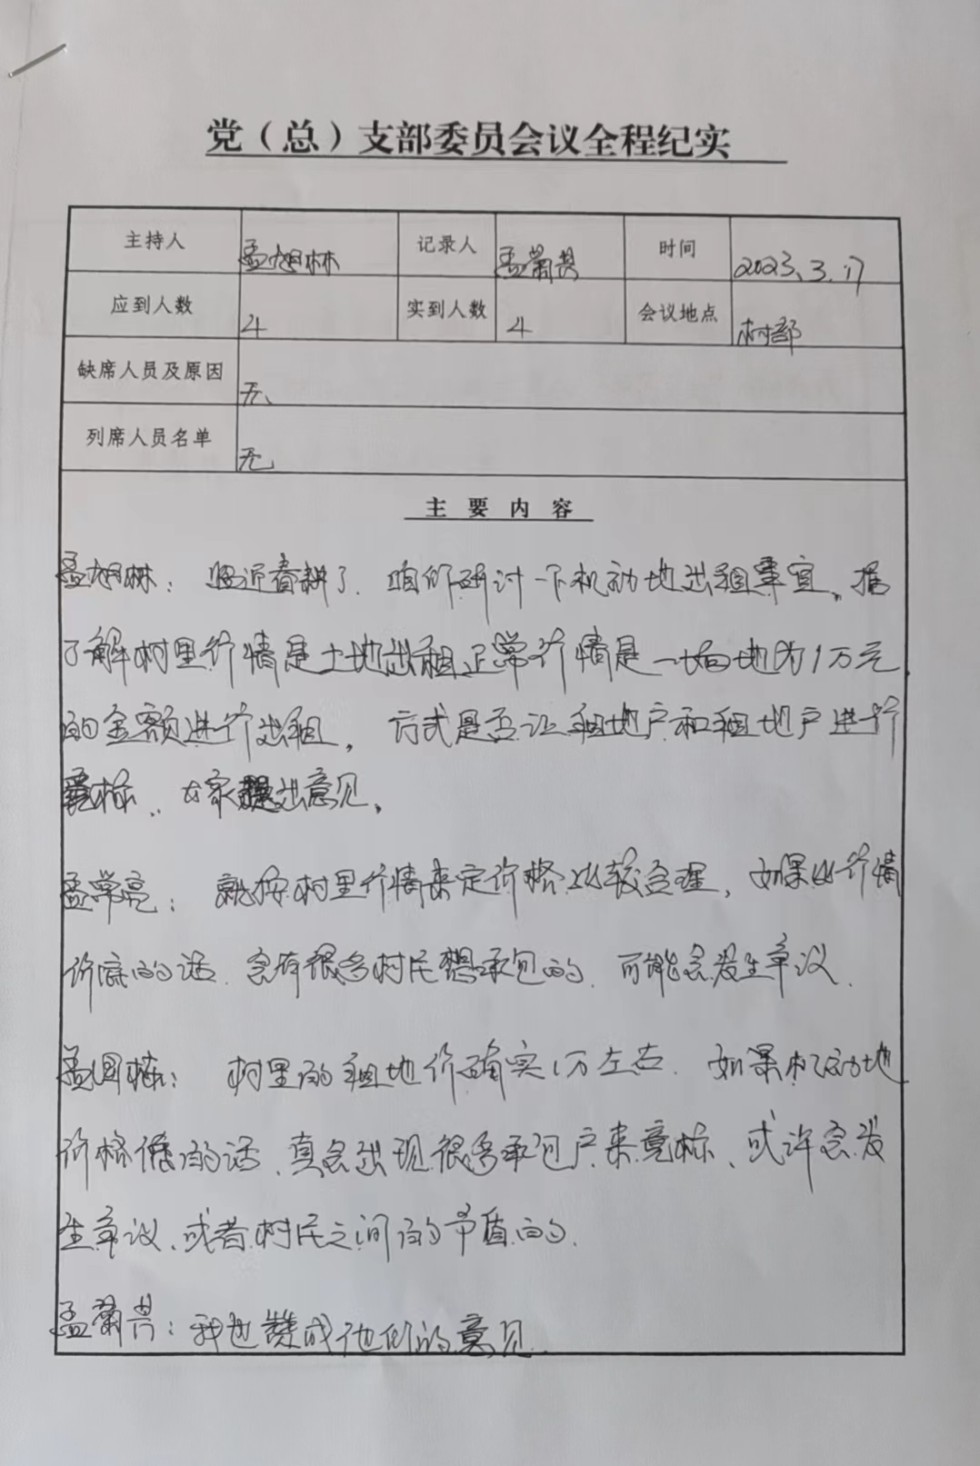 党（总）支部委员会议全程纪实
主持人 孟旭林 记录人 孟兰芳 时间 2023.3.17
应到人数 4 实到人数 4 会议地点 村部
缺席人员及原因 无
列席人员名单 无
主 要 内 容
孟旭林：临近春耕了，咱们研讨一下机动地出租事宜。据
了解村里行情是土地出租正常行情是一垧地为1万元
的金额进行出租，方式是否让租地户和租地户进行
竞标，大家提出意见。
孟学亮：就按村里行情来定价格比较合理，如果比行情
价底的话，会有很多村民想承包的，可能会发生争议。
孟国栋：村里的租地价确实1万左右，如果机动地
价格低的话，真会出现很多承包户来竞标，或许会发
生争议，或者村民之间的矛盾的。
孟兰芳：我也赞成他们的意见。